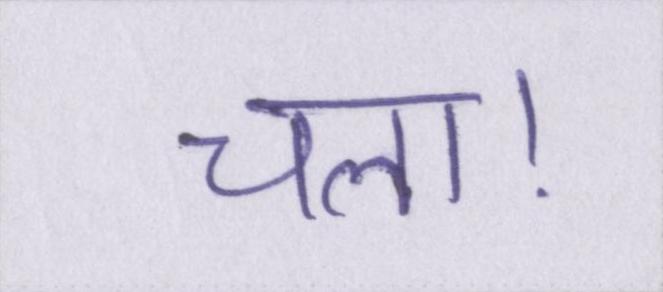 चला!